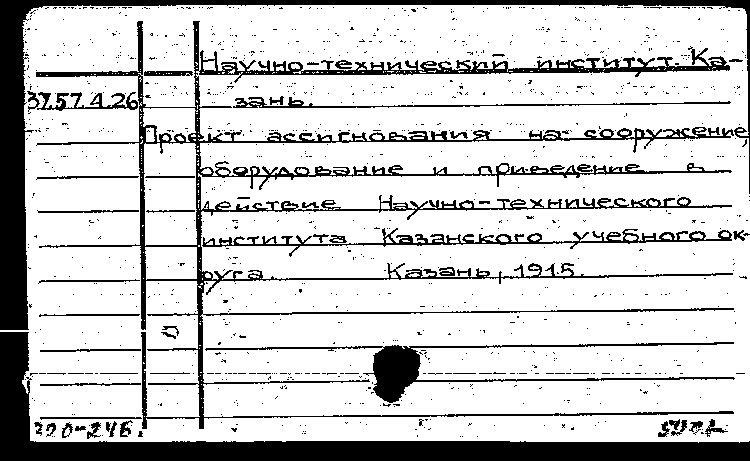 Научно-технический институт. Ка-
37.57.4.26. зань.
Проект ассигнования на сооружение,
оборудование и приведение в
действие Научно-технического
института Казанского учебного ок-
руга. Казань, 1915.